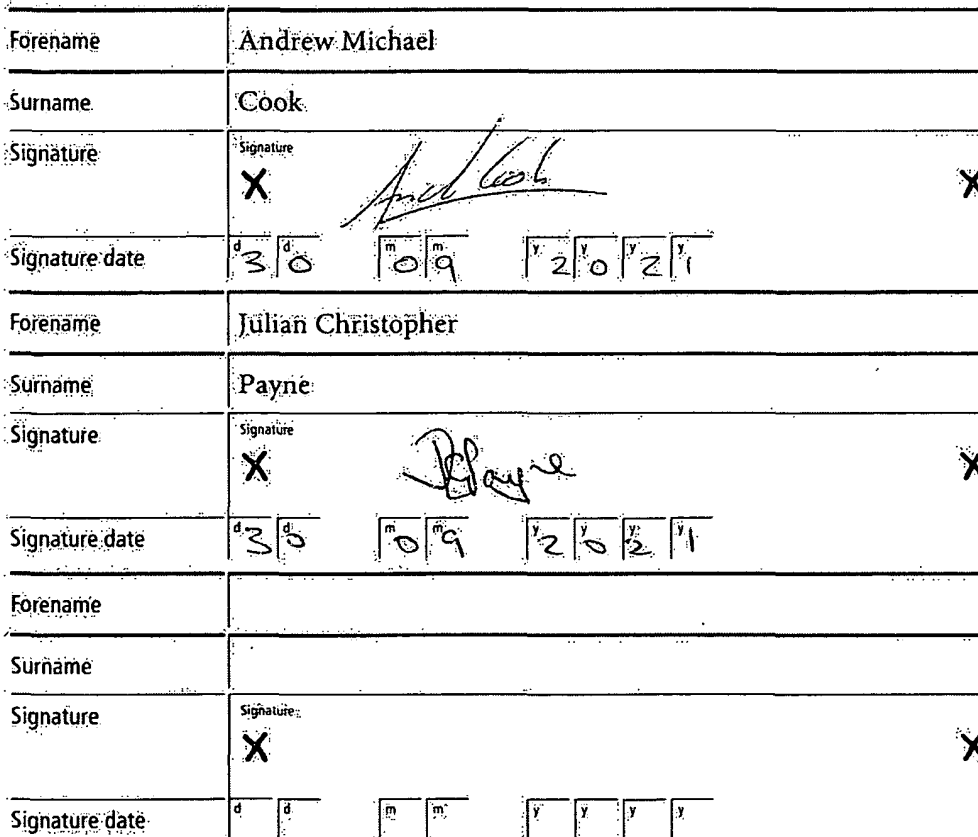 Forename Andrew Michael
Surname Cook
Signature Signature
X X
Signature date d 3 d 0 m 0 m 9 y 2 y 0 y 2 y 1
Forename Julian Christopher
Surname Payne
Signature Signature
X JCPayne X
Signature date d 3 d 0 m 0 m 9 y 2 y 0 y 2 y 1
Forename
Surname
Signature Signature
X X
Signature date d d m m y y y y